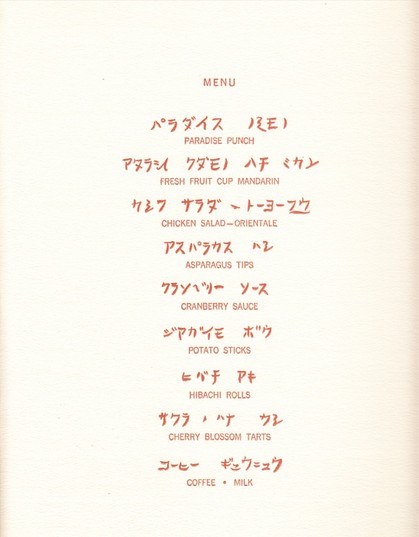 MENU
パラダイス ノミモノ
PARADISE PUNCH
アタラシイ クダモノ ハチ ミカン
FRESH FRUIT CUP MANDARIN
カシワ サラダ ー トーヨーフウ
CHICKEN SALAD—ORIENTALE
アスパラカス ハシ
ASPARAGUS TIPS
クランベリー ソース
CRANBERRY SAUCE
ジアガイモ ボウ
POTATO STICKS
ヒバチ アキ
HIBACHI ROLLS
サクラ・ハナ ウシ
CHERRY BLOSSOM TARTS
コーヒー ギュウニュウ
COFFEE • MILK